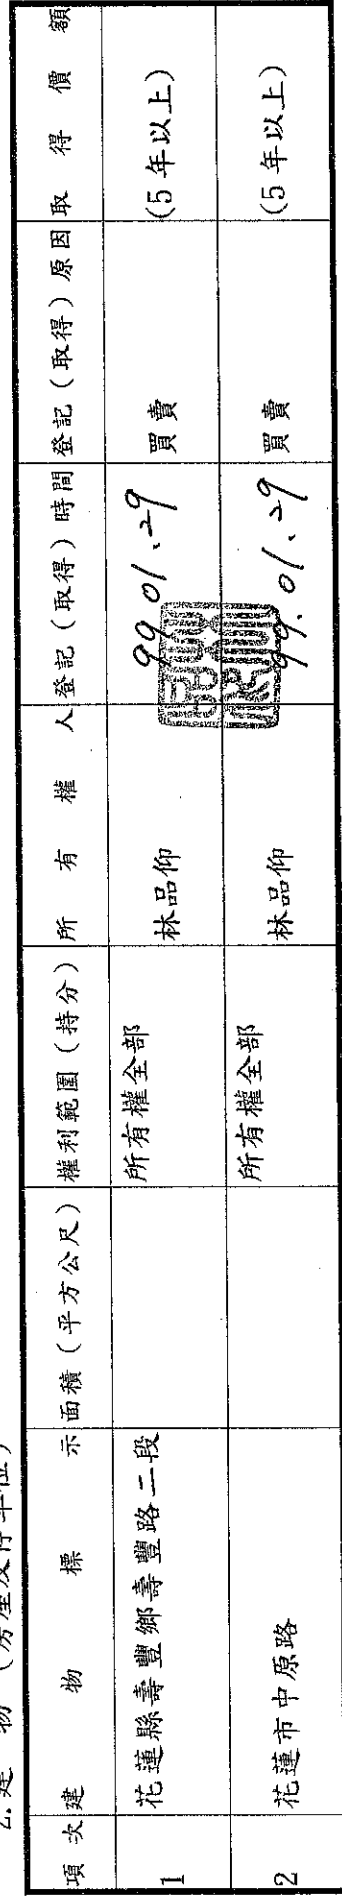 2.建 物（房屋及停車位）
項次 建物標示 面積（平方公尺） 權利範圍（持分） 所有權人 登記（取得）時間 登記（取得）原因 取得價額
1 花蓮縣壽豐鄉壽豐路二段 所有權全部 林品仰 99.01.29 買賣 (5年以上)
2 花蓮市中原路 所有權全部 林品仰 99.01.29 買賣 (5年以上)